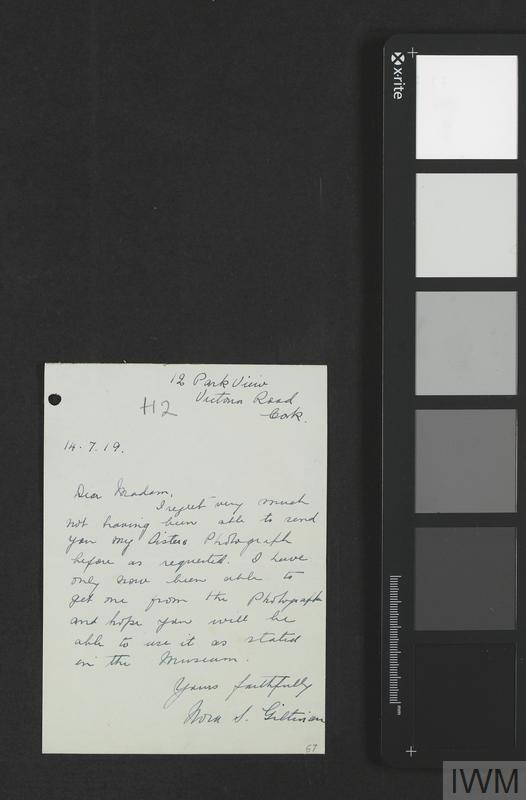 12 Park View
Victoria Road
Cork.
H2
14.7.19.
Dear Madam,
I regret very much
not having been able to send
you my Sisters Photograph
before as requested. I have
only now been able to
get one from the Photographer
and hope you will be
able to use it as stated
in the Museum.
Yours faithfully
Nora S. Giltinan
67
x-rite
mm
IWM